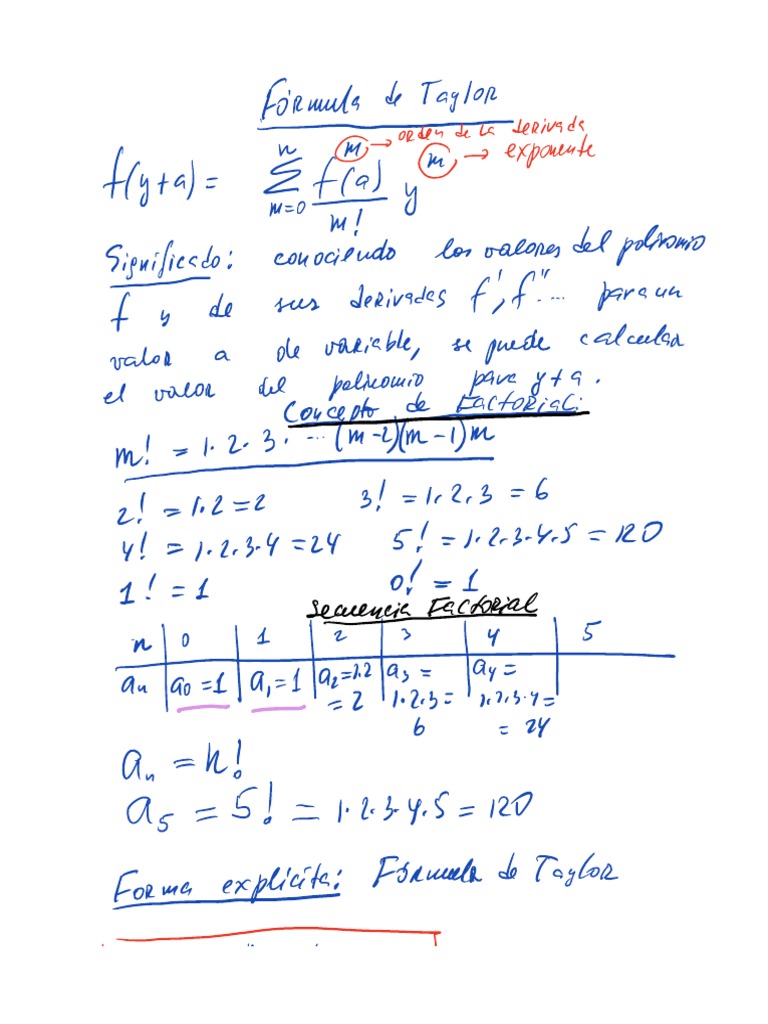 Fórmula de Taylor
m → orden de la derivada
m → exponente
f(y+a) = n Σ m=0 f(a) / m! y
Significado: conociendo los valores del polinomio
f y de sus derivadas f', f'' ... para un
valor a de variable, se puede calcular
el valor del polinomio para y+a.
Concepto de Factorial:
m! = 1·2·3· ... (m-2)(m-1)m
2! = 1·2 = 2 3! = 1·2·3 = 6
4! = 1·2·3·4 = 24 5! = 1·2·3·4·5 = 120
1! = 1 0! = 1
Secuencia Factorial
n 0 1 2 3 4 5
an a0 = 1 a1 = 1 a2 = 1·2 a3 = a4 =
= 2 1·2·3 = 1·2·3·4 =
6 = 24
an = n!
a5 = 5! = 1·2·3·4·5 = 120
Forma explícita: Fórmula de Taylor